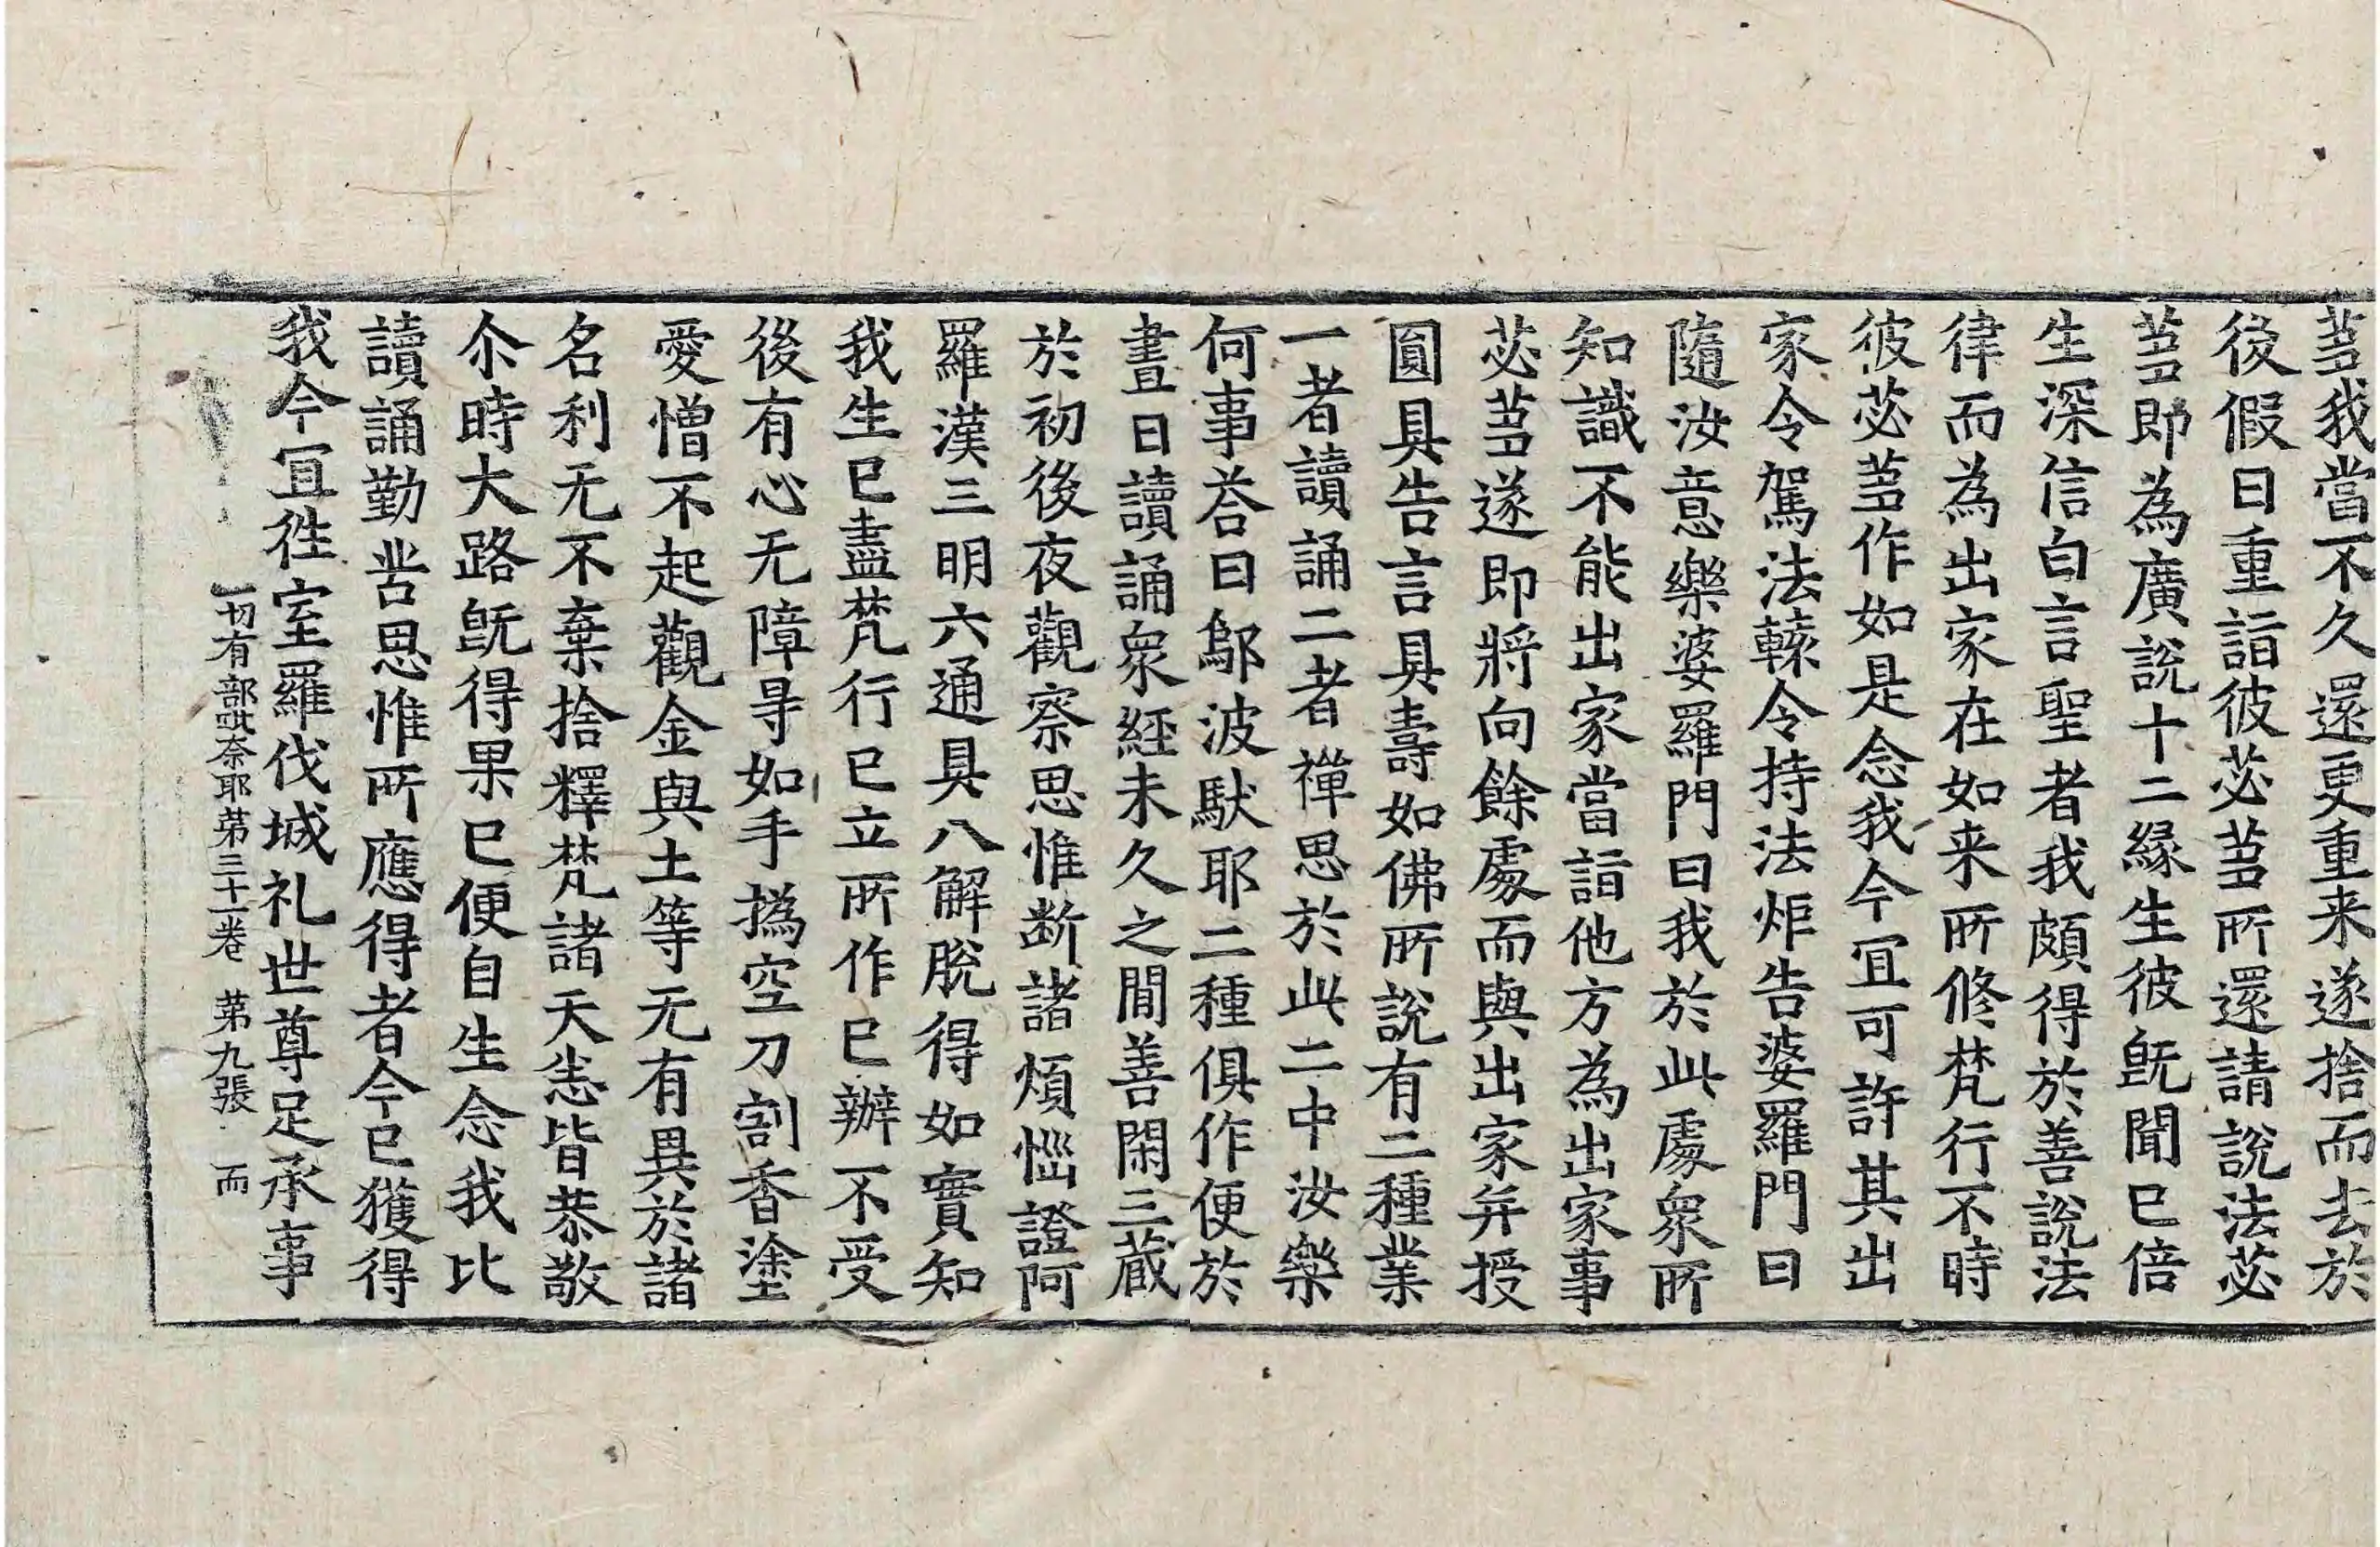 蒭我當不久還更重来遂捨而去於
後假日重詣彼苾蒭所還請說法苾
蒭即為廣說十二緣生彼旣聞已倍
生深信白言聖者我頗得於善說法
律而為出家在如来所修梵行不時
彼苾蒭作如是念我今冝可許其出
家令駕法轅令持法炬告婆羅門曰
隨汝意樂婆羅門曰我於此處衆所
知識不能出家當詣他方為出家事
苾蒭遂即將向餘處而與出家并授
圓具告言具壽如佛所說有二種業
一者讀誦二者禪思於此二中汝樂
何事荅曰鄔波馱耶二種俱作便於
晝日讀誦衆經未久之間善閑三藏
於初後夜觀察思惟断諸煩惱證阿
羅漢三明六通具八解脫得如實知
我生已盡梵行已立所作已辦不受
後有心无障㝵如手撝空刀割香塗
愛憎不起觀金與土等无有異於諸
名利无不棄捨釋梵諸天悉皆恭敬
尒時大路旣得果已便自生念我比
讀誦勤苦思惟所應得者今已獲得
我今冝徃室羅伐城礼世尊足承事
一切有部毗奈耶苐三十一卷 苐九張 而